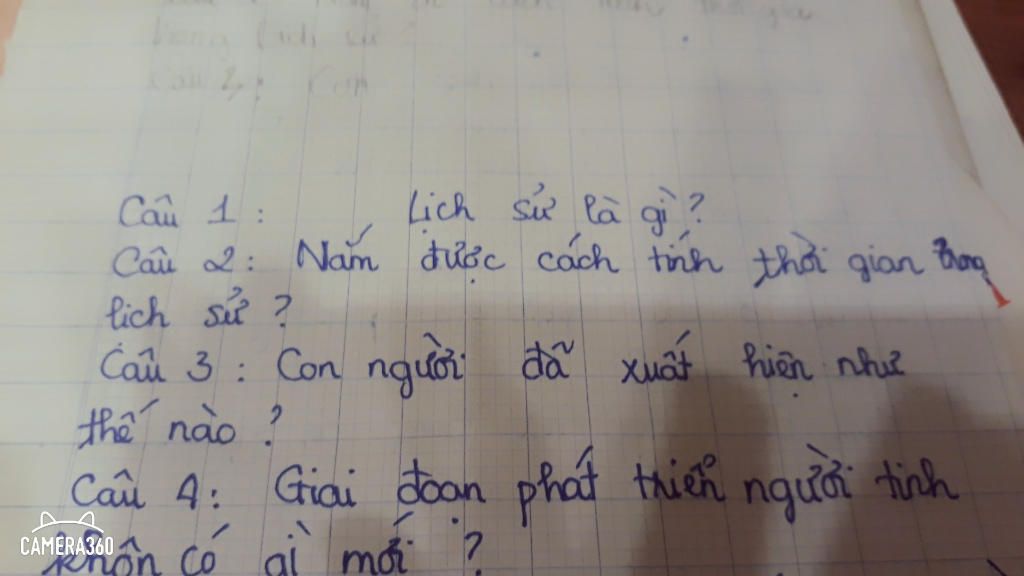 Câu 1 : Lịch sử là gì ?
Câu 2 : Nắm được cách tính thời gian trong
lịch sử ?
Câu 3 : Con người đã xuất hiện như
thế nào ?
Câu 4 : Giai đoạn phát triển người tinh
khôn có gì mới ?
CAMERA360